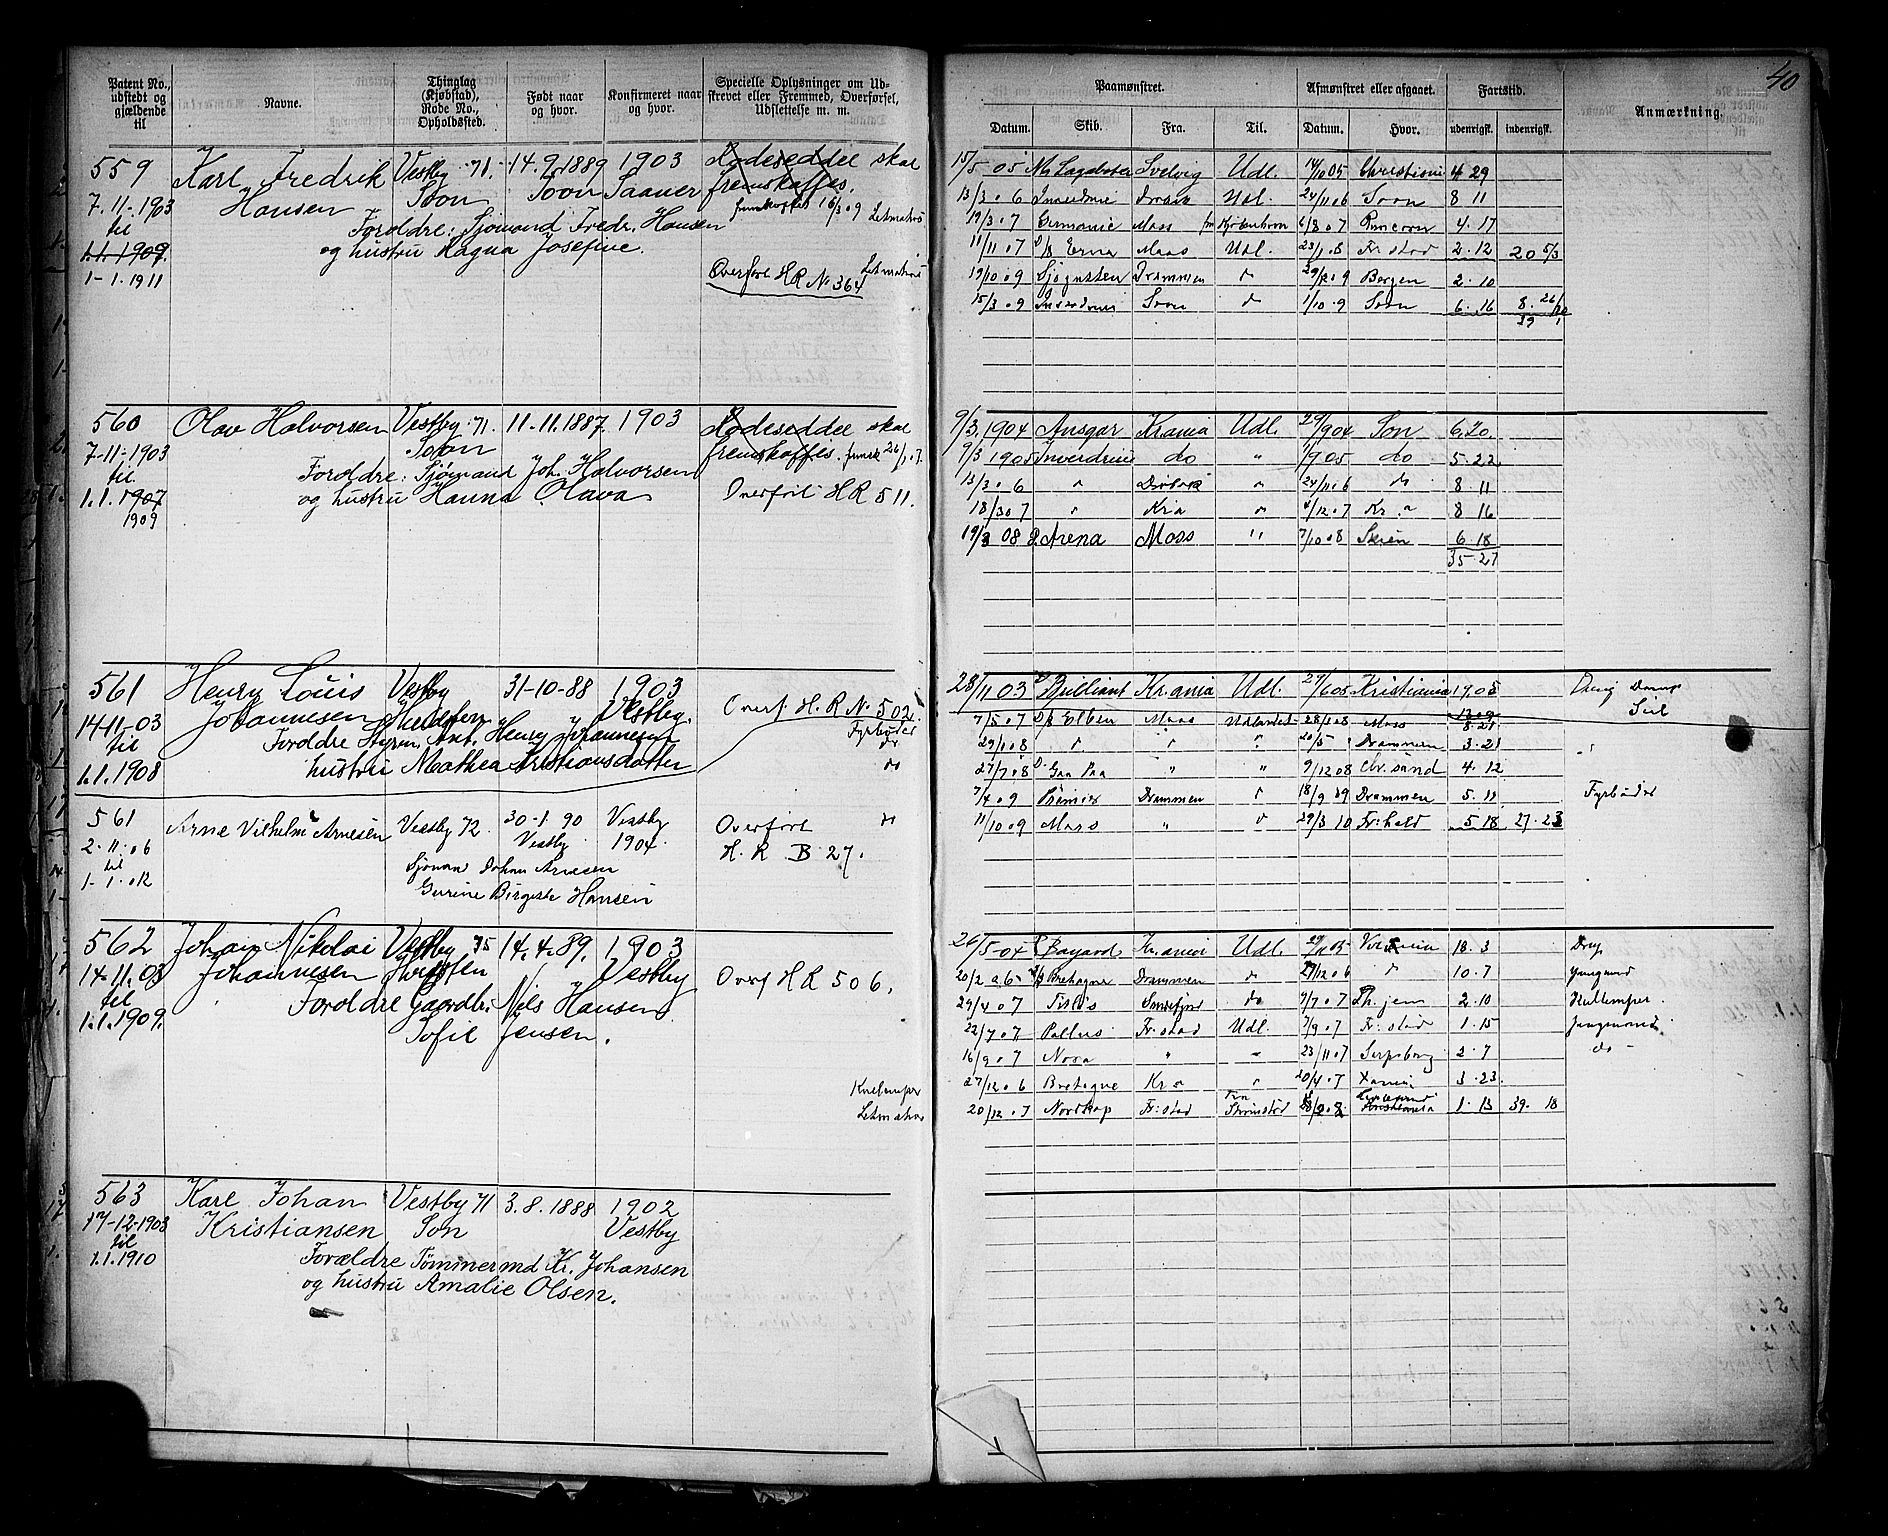 40
Patent No., udstedt og gjældende til
Navne.
Thinglag (Kjøbstad), Rode No., Opholdssted.
Født naar og hvor.
Konfirmeret naar og hvor.
Specielle Oplysninger om Udstrevet eller Fremmed, Overførsel, Udslettelse m. m.
Paamønstret.
Afmønstret eller afgaaet.
Fartstid.
Anmærkning.
Datum. Skib. Fra. Til. Datum. Hvor. udenrigsk. indenrigsk.
559 Karl Fredrik Vestby 71. 14.9.1889 1903 Rodeseddel skal
7.11.1903 Hansen Soon Soon Saaner fremskaffes.
til Forældre: Sjømand Fredr. Hansen 16/3 09 Letmatros
1.1.1909 og hustru Ragna Josefine.
1-1.1911 Overført H R No 364 Letmatros
15/5 05 Svelvig Udl. 14/10 05 4 29
13/3 06 Udl. 24/11 06 Soon 8 11
19/3 07 Germanic Moss 6/8 07 4.17
11/11 07 Erna Moss Udl. 23/1 08 Fr.stad 2.12
19/10 09 Drammen Bergen 2.10
15/3 09 Soon do 1/10 09 Soon 6.16
560 Olav Halvorsen Vestby 71. 11.11.1887 1903 Rodeseddel skal
7-11-1903 Soon fremskaffes.
til Forældre: Sjømand Joh. Halvorsen
1.1.1907 og hustru Hanna Olava Overført H R 511.
1909
9/3 1904 Ansgar Krania Udl. 29/9 04 Son 6.20.
9/3 1905 do " do 5.22
13/3 06 " 24/11 06 do 8 11
18/3 07 " Kria 4/12 07 8 16
19/3 08 Arena Moss " 7/10 08 Skien 6 18
35.27
561 Henry Louis Vestby 31-10-88 1903
14-11-03 Johannesen Vestby. Overf. H. R No. 502.
til Forældre Styrm. Ant. Henry Johannesen Fyrbøder
1.1.1908 hustru Mathea Kristiansdatter do
28/11 03 Brilliant Kr.ania Udl. 27/6 05 Kristiania
7/5 07 Elben Moss Udlandet 28/1 08 Moss 8.21
29/1 08 Drammen 3.21
27/7 08 Gaa Paa " " 9/12 08 Chr.sand 4.12
7/4 09 Drammen 18/9 09 Drammen 5.11 Fyrbøder
11/10 09 Moss " 29/3 10 Fr:hald 5 18 27.23
561 Arne Vilhelm Arnesen Vestby 72. 30-1.90 Vestby do
2.11.06 Vestby 1904. Overført
til Sjömand Johan Arnesen H. R B 27.
1-1.012 Birgitte Hansen
562 Johan Nikolai Vestby 75 14.4.89. 1903
14.11.03 Johannesen Vestby Overf H R 506.
til Forældre Gaardbr. Nils Hansen
1.1.1909. Sofie Jensen.
Letmatros
26/5 04 Bayard Kr.ania Udl. 18.3
20/2 06 Bretagne Drammen do 27/12 06 10.7 Jungmand
29/4 07 do 9/7 07 2.10
22/7 07 Pallas Fr:stad Udl. 7/9 07 Fr:stad 1.15 Jungmand
16/9 07 Nora " 23/11 07 Sarpsborg 2.7 do
27/12 06 Bretagne Kra 20/4 07 3 23.
20/12 07 Nordkap Fr:stad 1.13 39.18
563 Karl Johan Vestby 71 3.8.1888 1902
17-12-1903 Kristiansen Son Vestby
til Forældre Tømmermd Kr. Johansen
1.1.1910 og hustru Amalie Olsen.